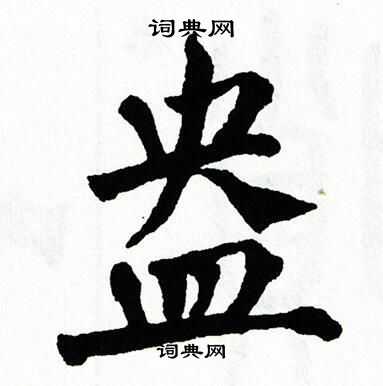 词典网
盎
词典网